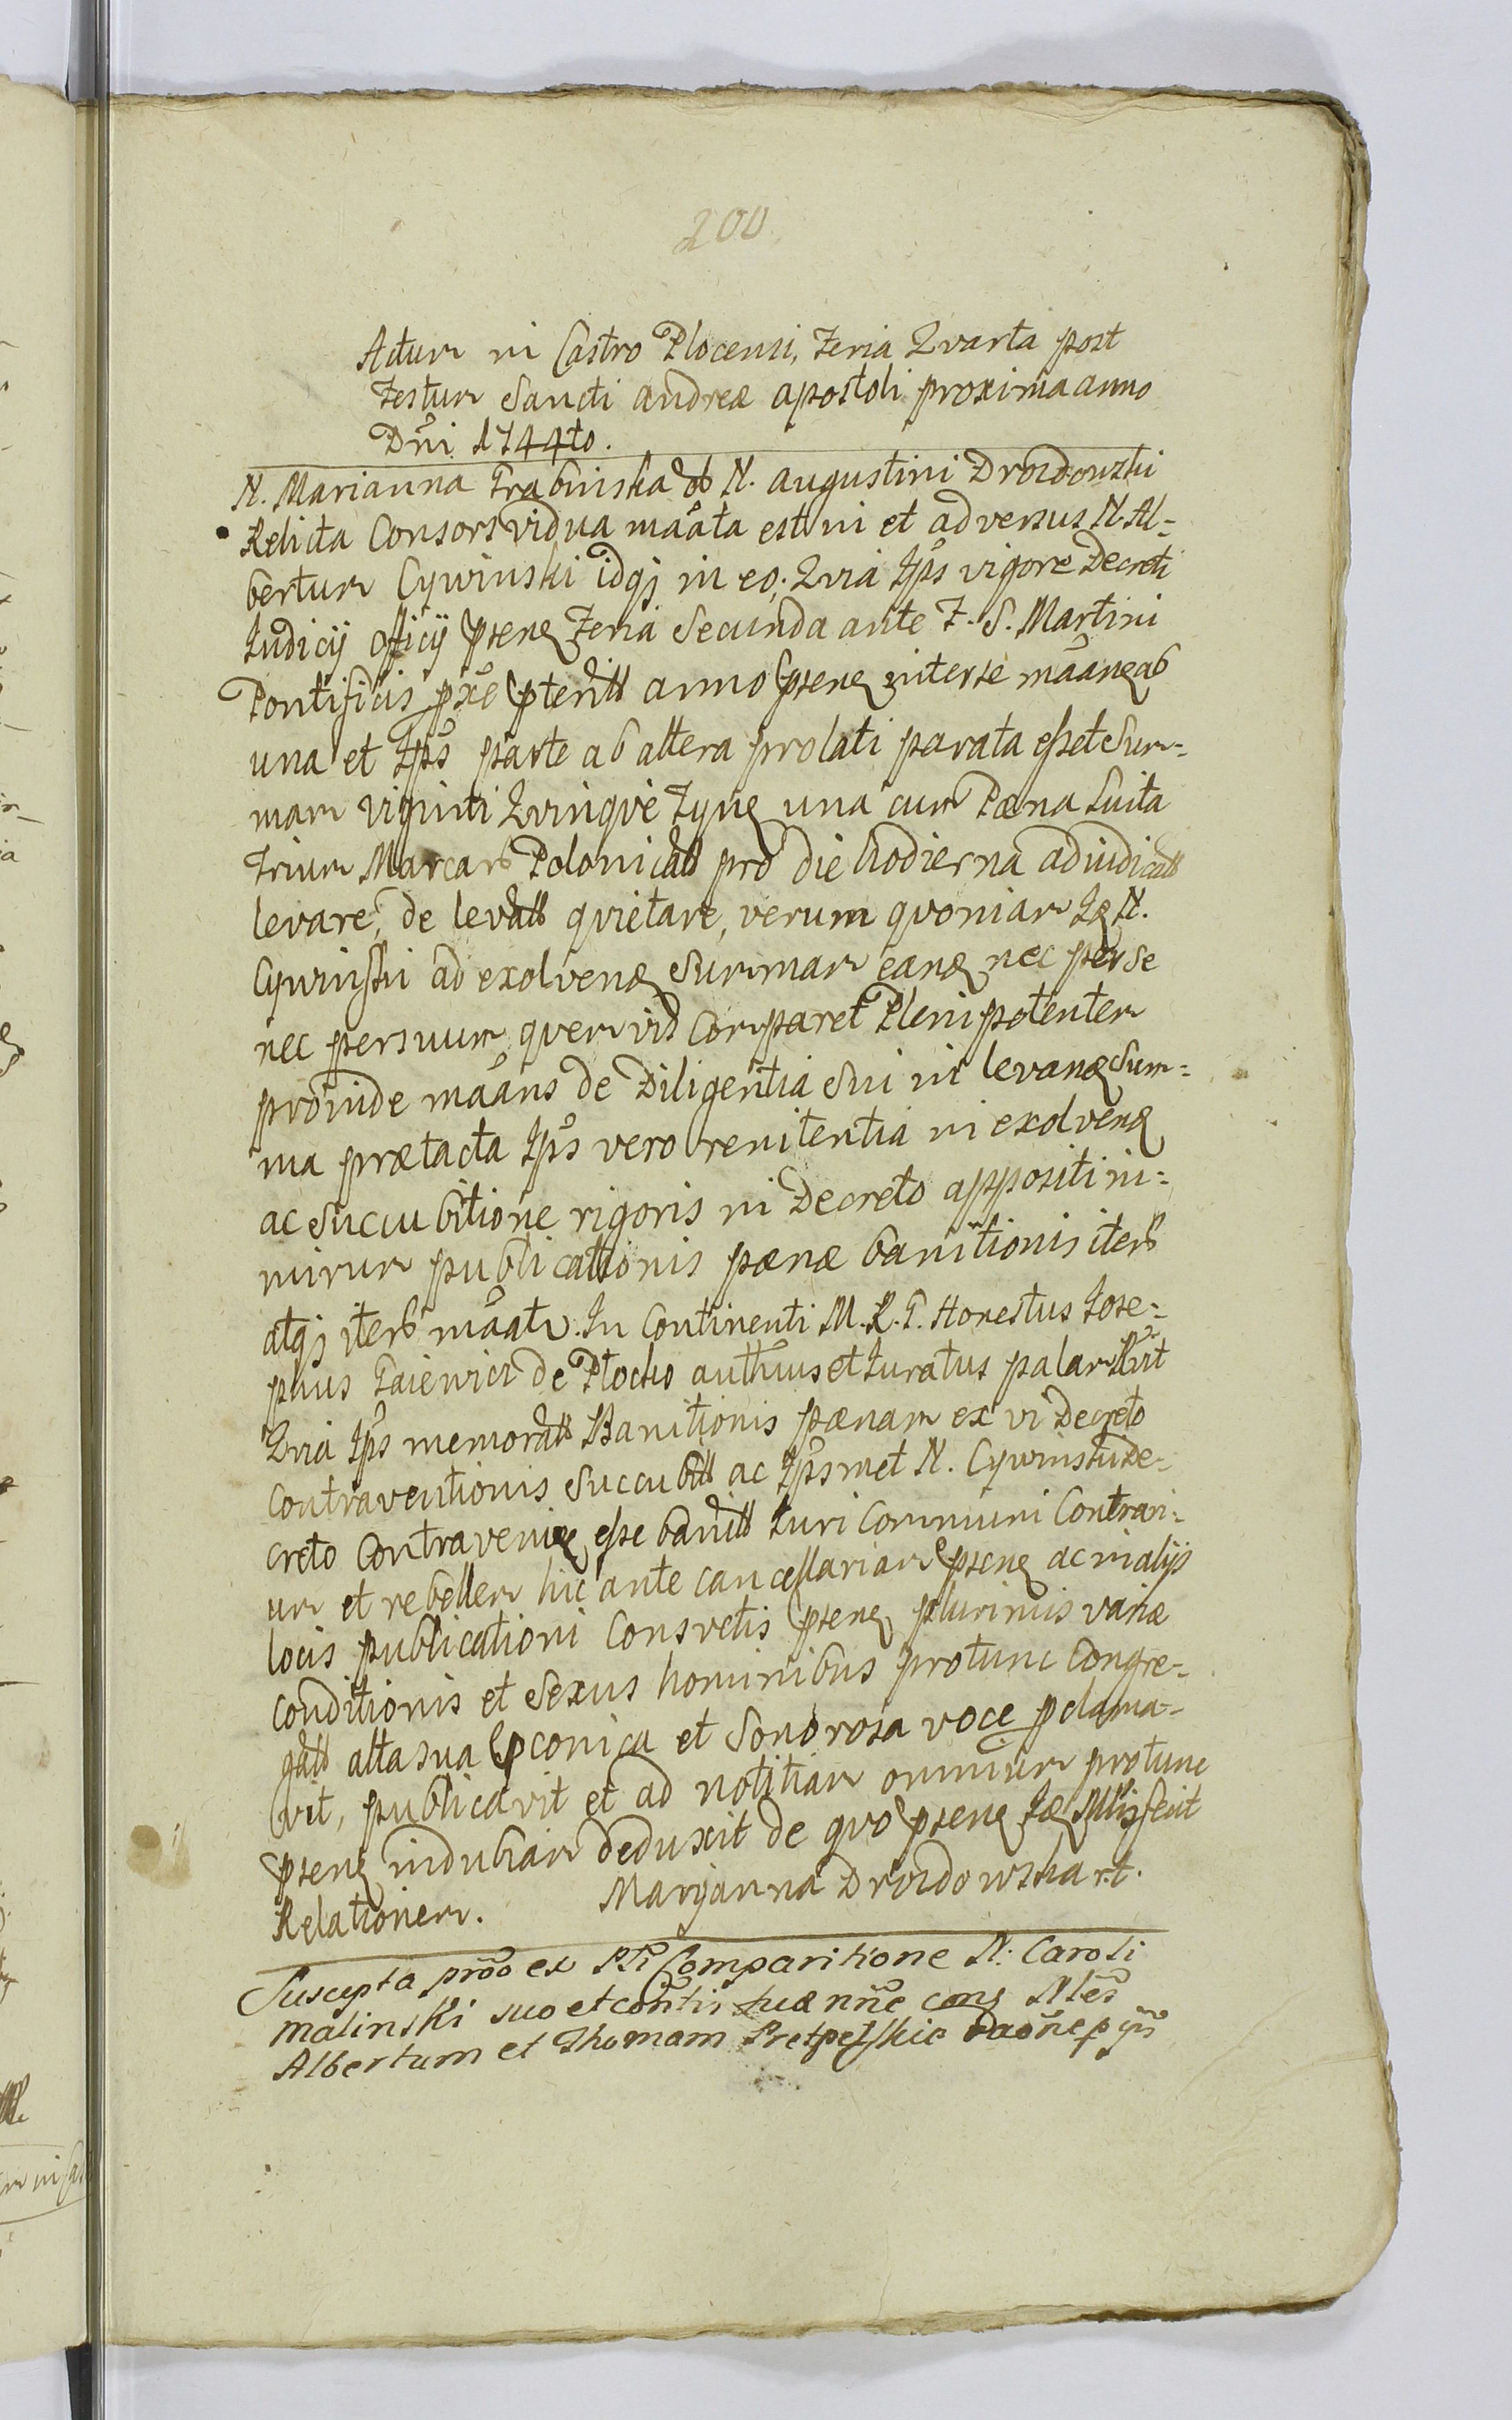 200
Actum in Castro Plocensi, Feria Qvarta post
Festum Sancti Andreæ apostoli proxima anno
Dni 1744to.
N. Marianna Grabinska N. Augustini Drozdowski
Relicta Consors vidua est in et adversus N. Al-
bertum Cywinski idqz in eo, Qvia Ips vigore Decreti
Iudicÿ officÿ psenz Feria Secunda ante F. S. Martini
Pontificis pxe anno psenz inter se ab
una et Ips parte ab altera prolati parata esset Sum-
mam viginti Qvinqve Tynz una cum Pæna Luita
Trium Marcar Polonicall pro die hodierna adiudicall
levare, de levatll qvietare, verum qvoniam Iz N.
Cywinski ad exolvenz Summam eanz nec per se
nec per suum qvemvis Comparet Plenipotentem
proinde mãans de Diligentia Sui in levanz Sum-
ma prætacta Ips vero renitentia in exolvenz
ac Succubitione rigoris in Decreto appositi ni-
mirum publicationis pænæ banitionis iterũ
atqz iterũ mãatr. In Continenti M. R. G. Honestus Iose-
phus Gaiewicz de Plocko authmus et Iuratus palam
Qvia Ips memoratll Banitionis pænam ex vi Decreto
Contraventionis Succubll ac Ipsmet N. Cywinski De-
creto Contravenienz esse banitll Iuri Communi Contrari-
um et rebellem hic ante Cancellariam psenz ac in alÿs
locis publicationi Consvetis psenz plurimis variæ
Conditionis et Sexus hominibus protunc Congre-
gatll alta sua pconica et Sonorosa voce pclama-
vit, publicavit et ad notitiam omnium protunc
psenz indubiam deduxit de qvo psenz Iz fecit
Relationem. Maryanna Drozdowska r.t.
Suscepta ex Comparitione N. Caroli
Malinski suo et
Albertum et Thomam